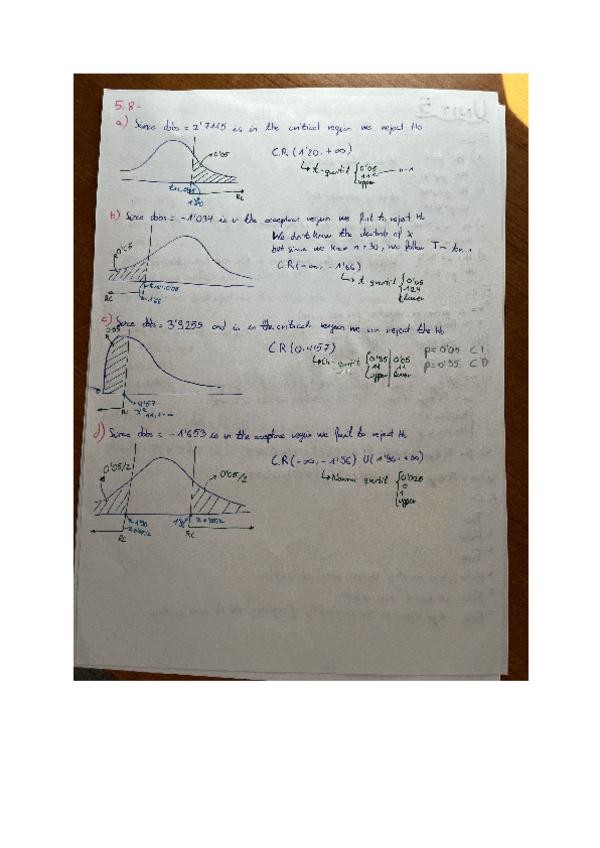 5.8-
a) Since dobs = 2'7115 is in the critical region we reject Ho
0'05
C.R (1'20, +∞)
↳ t-quartil { 0'05
11 n-1
upper
RC
b) Since dobs = -1'034 is in the acceptance region we fail to reject Ho
We don't know the distrib of X
but since we know n > 30, we follow T~ tn-1
0'05
C.R (-∞, -1'66)
↳ t quartil { 0'05
124
lower
RC
-1'66
c) Since dobs = 3'9255 and is in the critical region we can reject the Ho
0'05
C.R (0, 4'57)
p=0'05 C I
p=0'95 C D
↳ Chi-quartil { 0'95 | 0'05
11 | 11
upper | lower
0
4'57
RC
d) Since dobs = -1'653 is in the acceptance region we fail to reject Ho
0'05/2
0'05/2
C.R (-∞, -1'96) U (1'96, +∞)
↳ Normal quartil { 0'025
0
1
upper
RC
RC